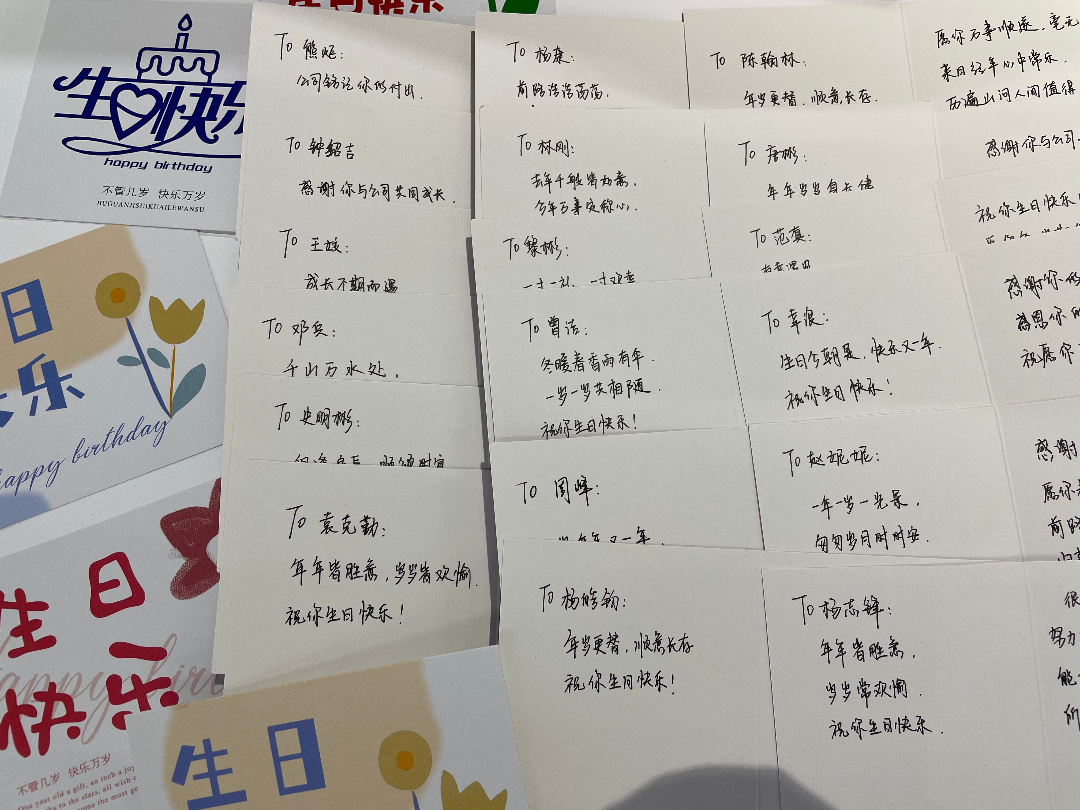 生日快乐
happy birthday
不管几岁 快乐万岁
BUGUANJISUIKUAILEWANSUI
日
乐
happy birthday
生日
快乐
不管几岁 快乐万岁
One year old a gift, an inch a joy
生日
To 熊妮:
公司铭记你的付出.
To 钟绍吉
感谢你与公司共同成长.
To 王媛:
成长不期而遇
To 邓兵:
千山万水处,
To 史明彬:
To 袁克勤:
年年皆胜意, 岁岁皆欢愉.
祝你生日快乐!
To 杨森:
前路浩浩荡荡,
To 林刚:
去年千般皆如意,
今年万事定称心.
To 黎彬:
To 曾洁:
冬暖春香雨有年.
一岁一岁共相随.
祝你生日快乐!
To 周峰:
To 杨皓钧:
年岁更替, 顺意长存
祝你生日快乐!
To 陈翰林:
年岁更替, 顺意长存.
To 唐彬:
年年岁岁身长健
To 范真:
To 幸浪:
生日今朝是, 快乐又一年.
祝你生日快乐!
To 赵妮妮:
一年一岁一光景,
匆匆岁月时时安.
To 杨志锋:
年年皆胜意,
岁岁常欢愉.
祝你生日快乐.
愿你万事顺遂, 毫无
来日经年心中常乐.
历遍山河人间值得
感谢你与公司
祝你生日快乐!
感谢你的
感恩你的
祝愿你
感谢
愿你
前路
很
努力
能
所